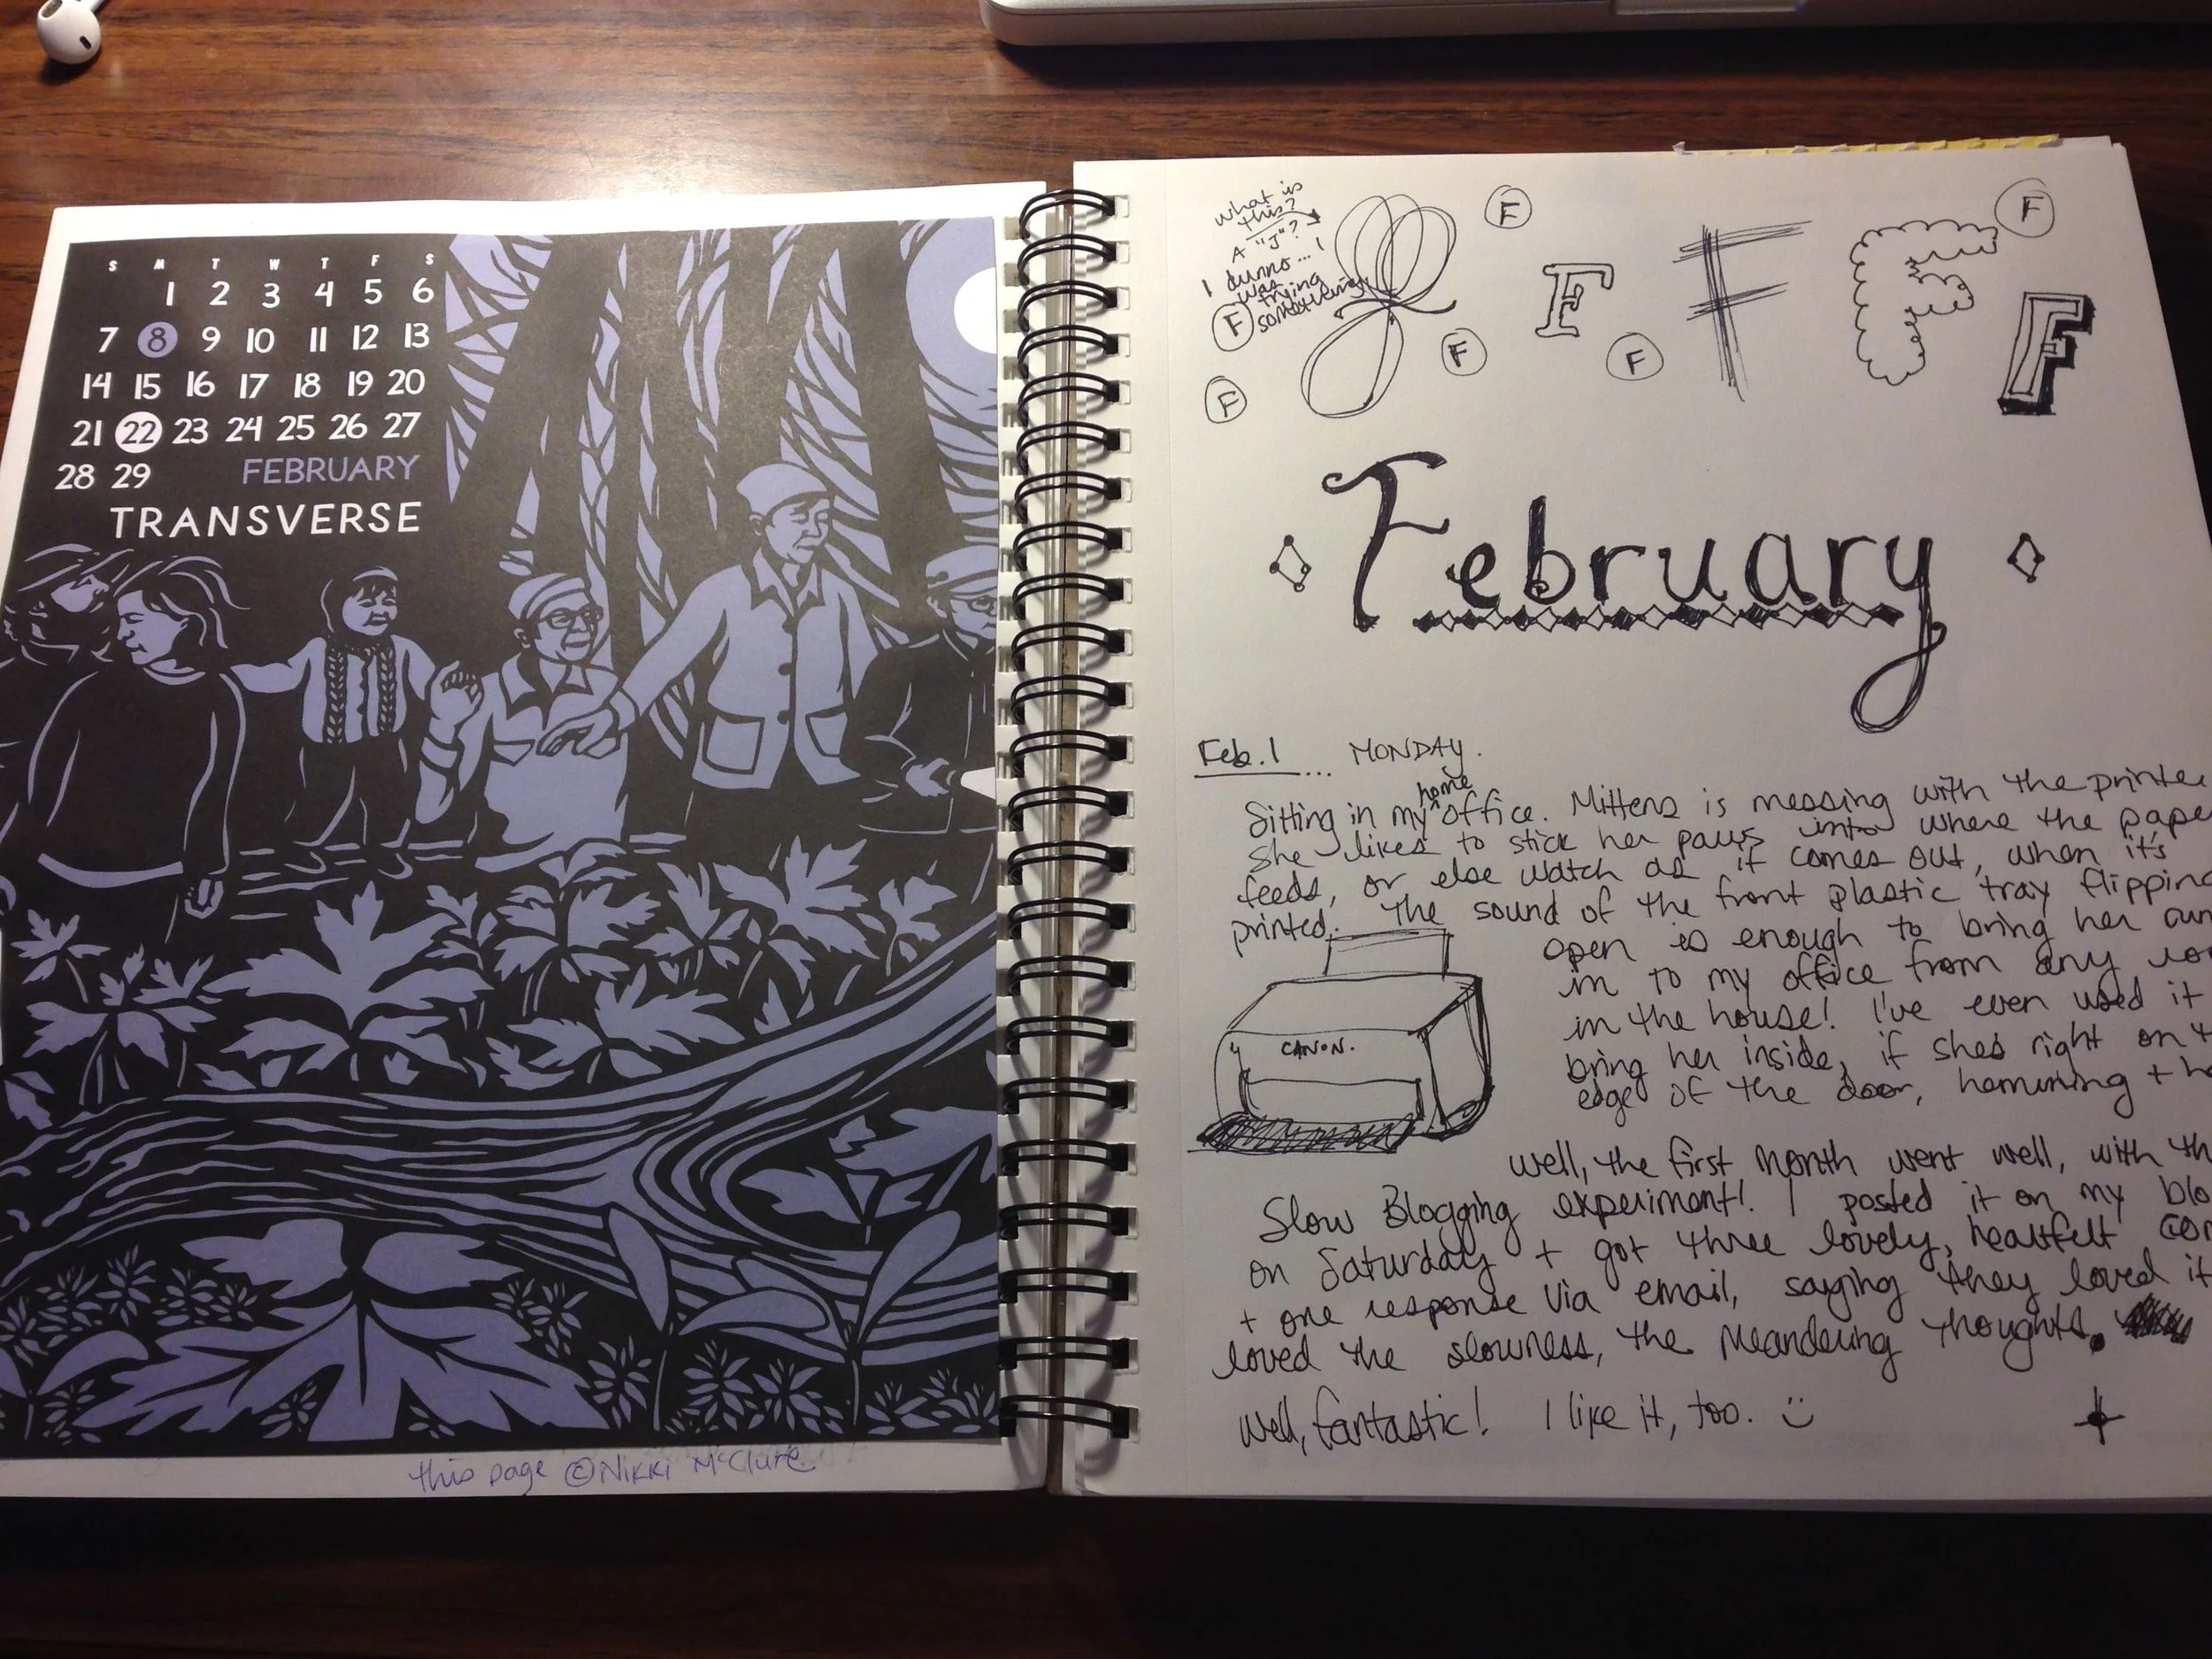 S M T W T F S
1 2 3 4 5 6
7 8 9 10 11 12 13
14 15 16 17 18 19 20
21 22 23 24 25 26 27
28 29 FEBRUARY
TRANSVERSE
this page © Nikki McClure
what is
this?
A "J"?
I dunno... I
was
trying
something
F
F
F
F
F
F
F
F
F
F
February
Feb. 1 ... MONDAY.
Sitting in my home office. Mittens is messing with the printer
She likes to stick her paws into where the pape
feeds, or else watch as it comes out, when it's
printed. The sound of the front plastic tray flipping
open is enough to bring her
in to my office from any
in the house! I've even used it
bring her inside, if shes right on
edge of the door, hemming +
CANON.
Well, the first month went well, with
Slow Blogging experiment! I posted it on my blo
on Saturday + got three lovely, heartfelt
+ one response via email, saying they loved it
loved the slowness, the meandering thoughts.
Well, fantastic! I like it, too. :)